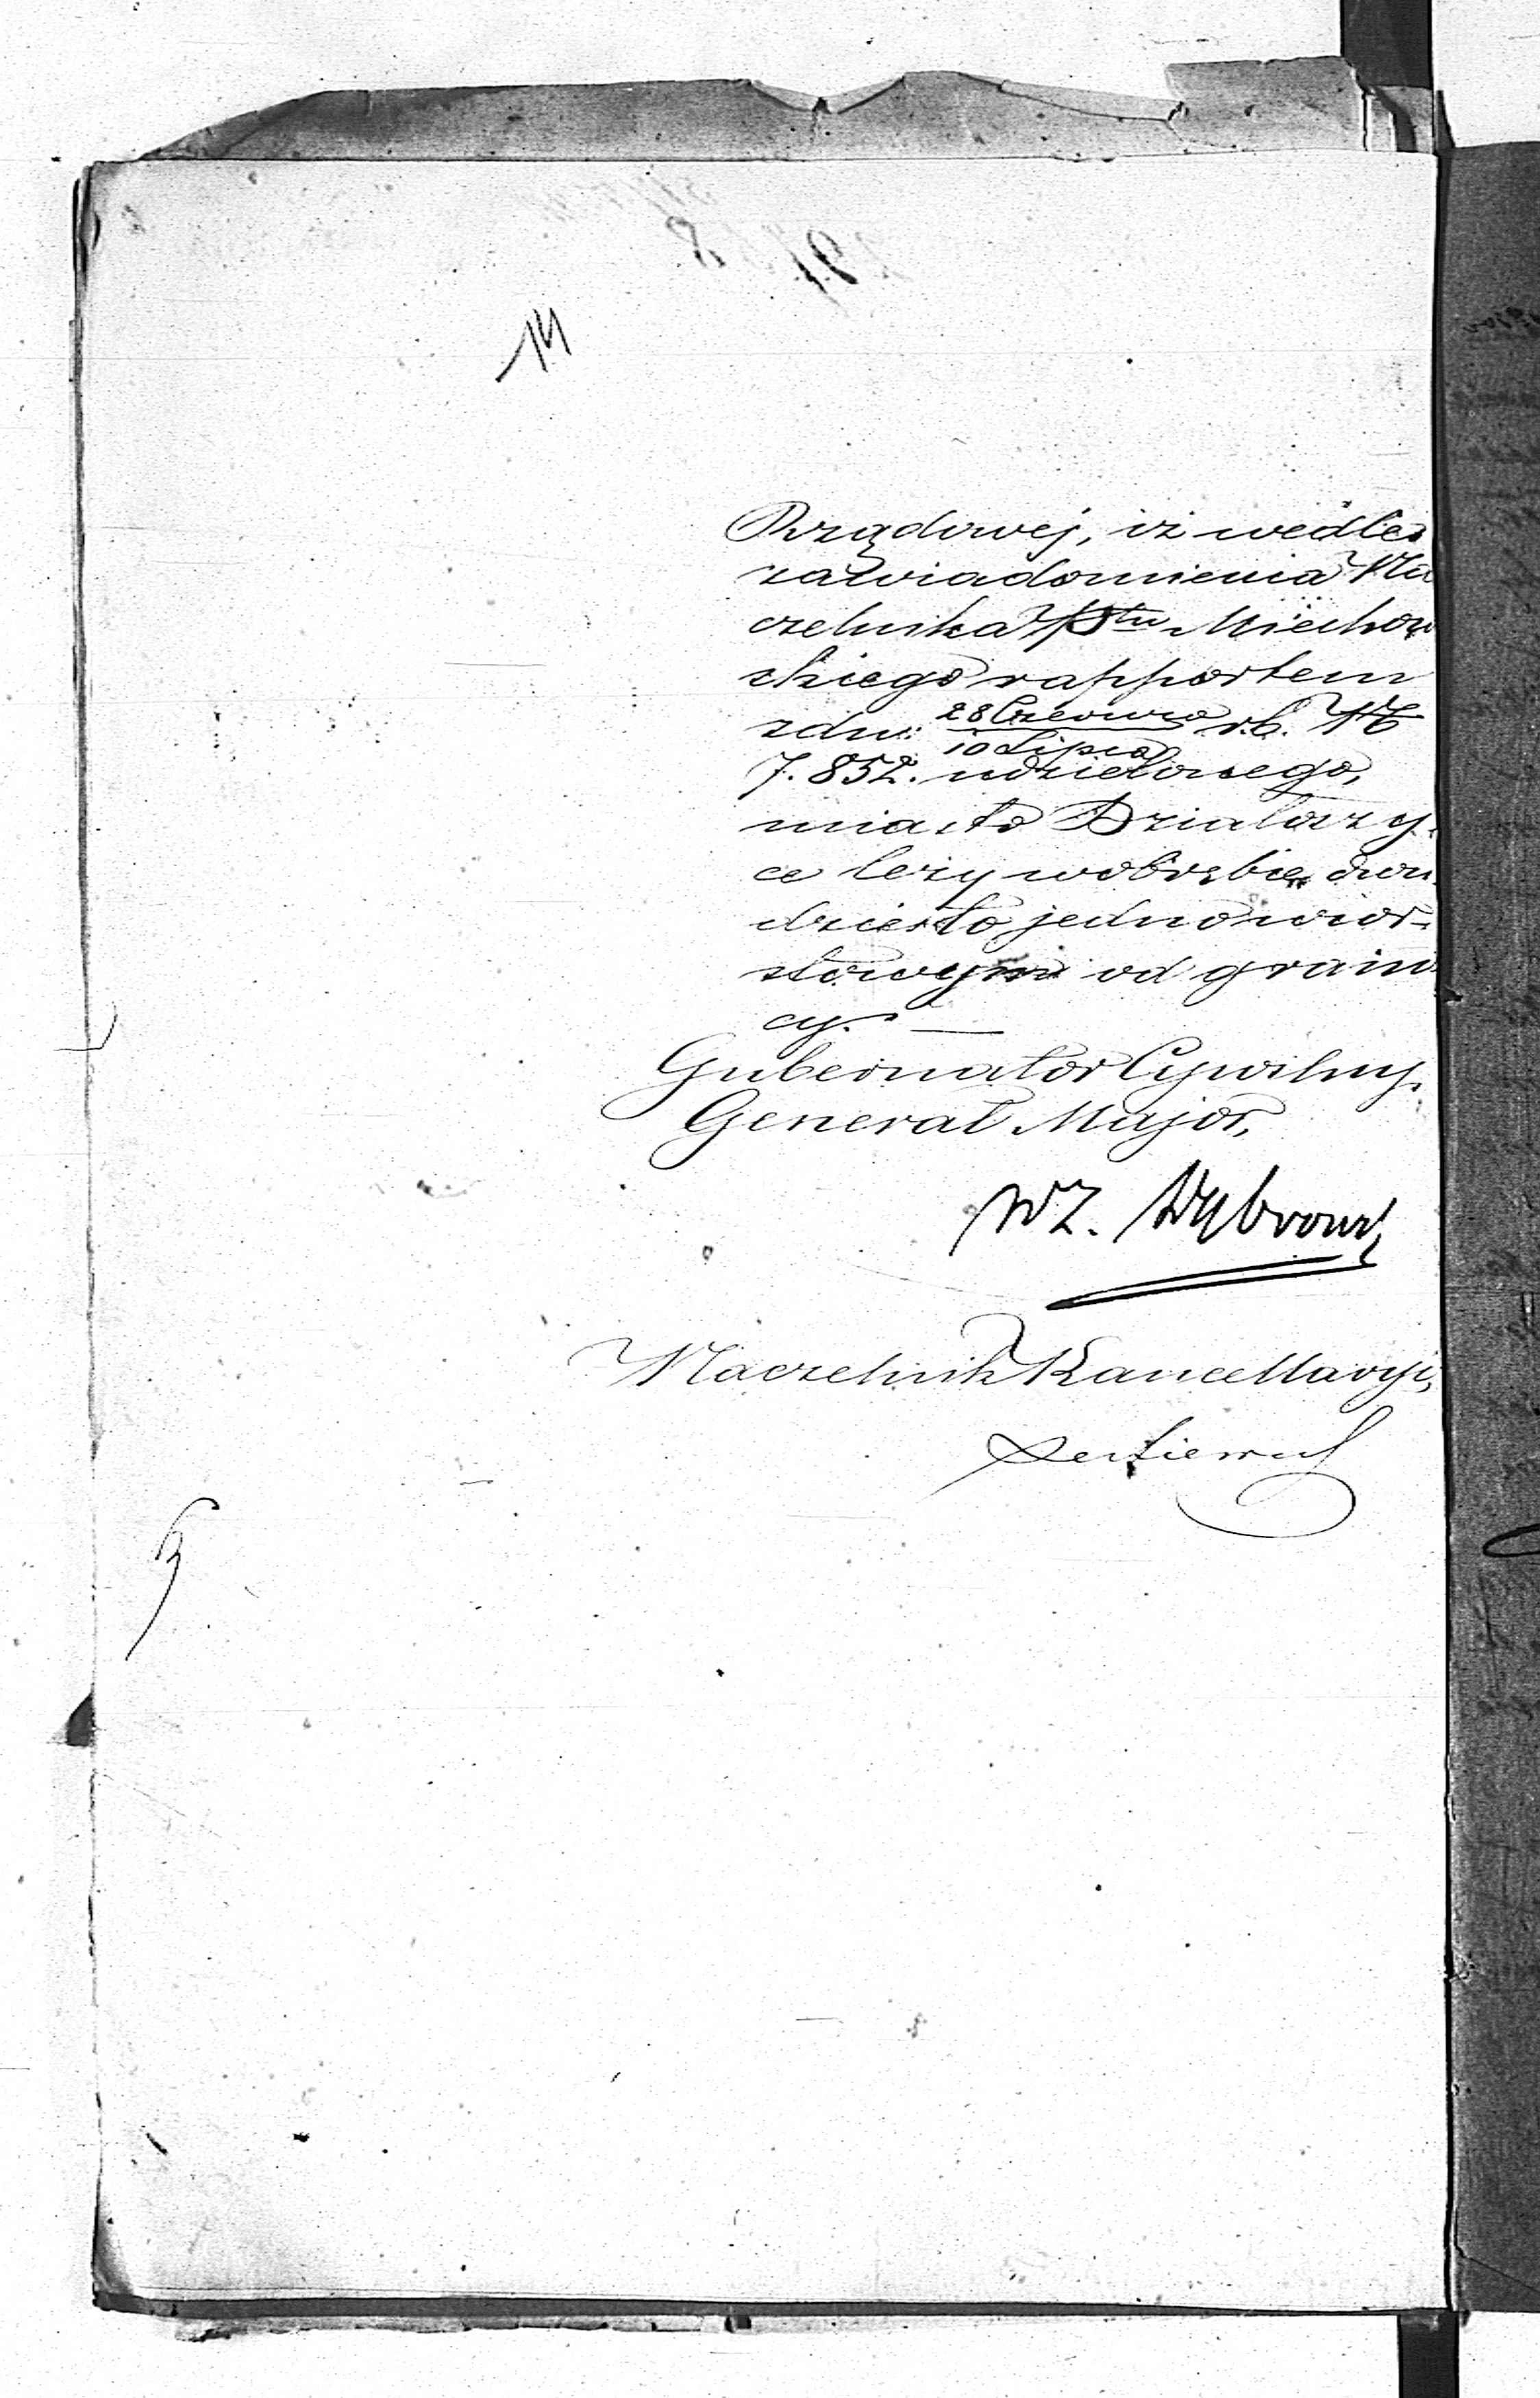 14
Rządowej, iż wedle
zawiadomienia Na
czelnika Pttu Miechow
skiego rapportem
z dnia 28 Czerwca / 10 Lipca r.b. N
7.852. udzielonego,
miasto Działoszy-
ce leży w obrębie dwu-
dziesto jedno wior-
stowym od grani-
cy. —
Gubernator Cywilny,
Generał Major,
wz.
Naczelnik Kancellaryi,